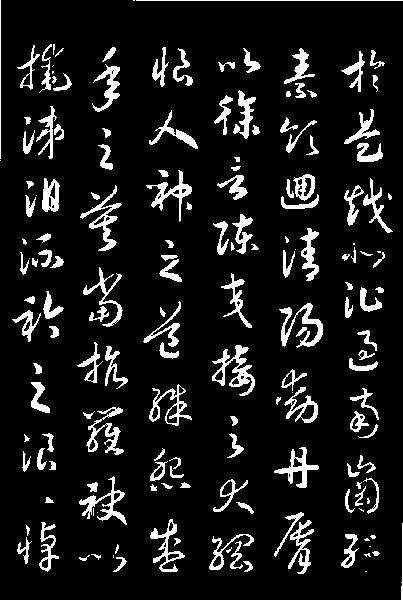 於是越北沚過南崗紆
素領迴清陽動丹脣
以徐言陳交接之大綱
恨人神之道殊怨盛
年之莫當抗羅袂以
掩涕泪流衿之浪、悼